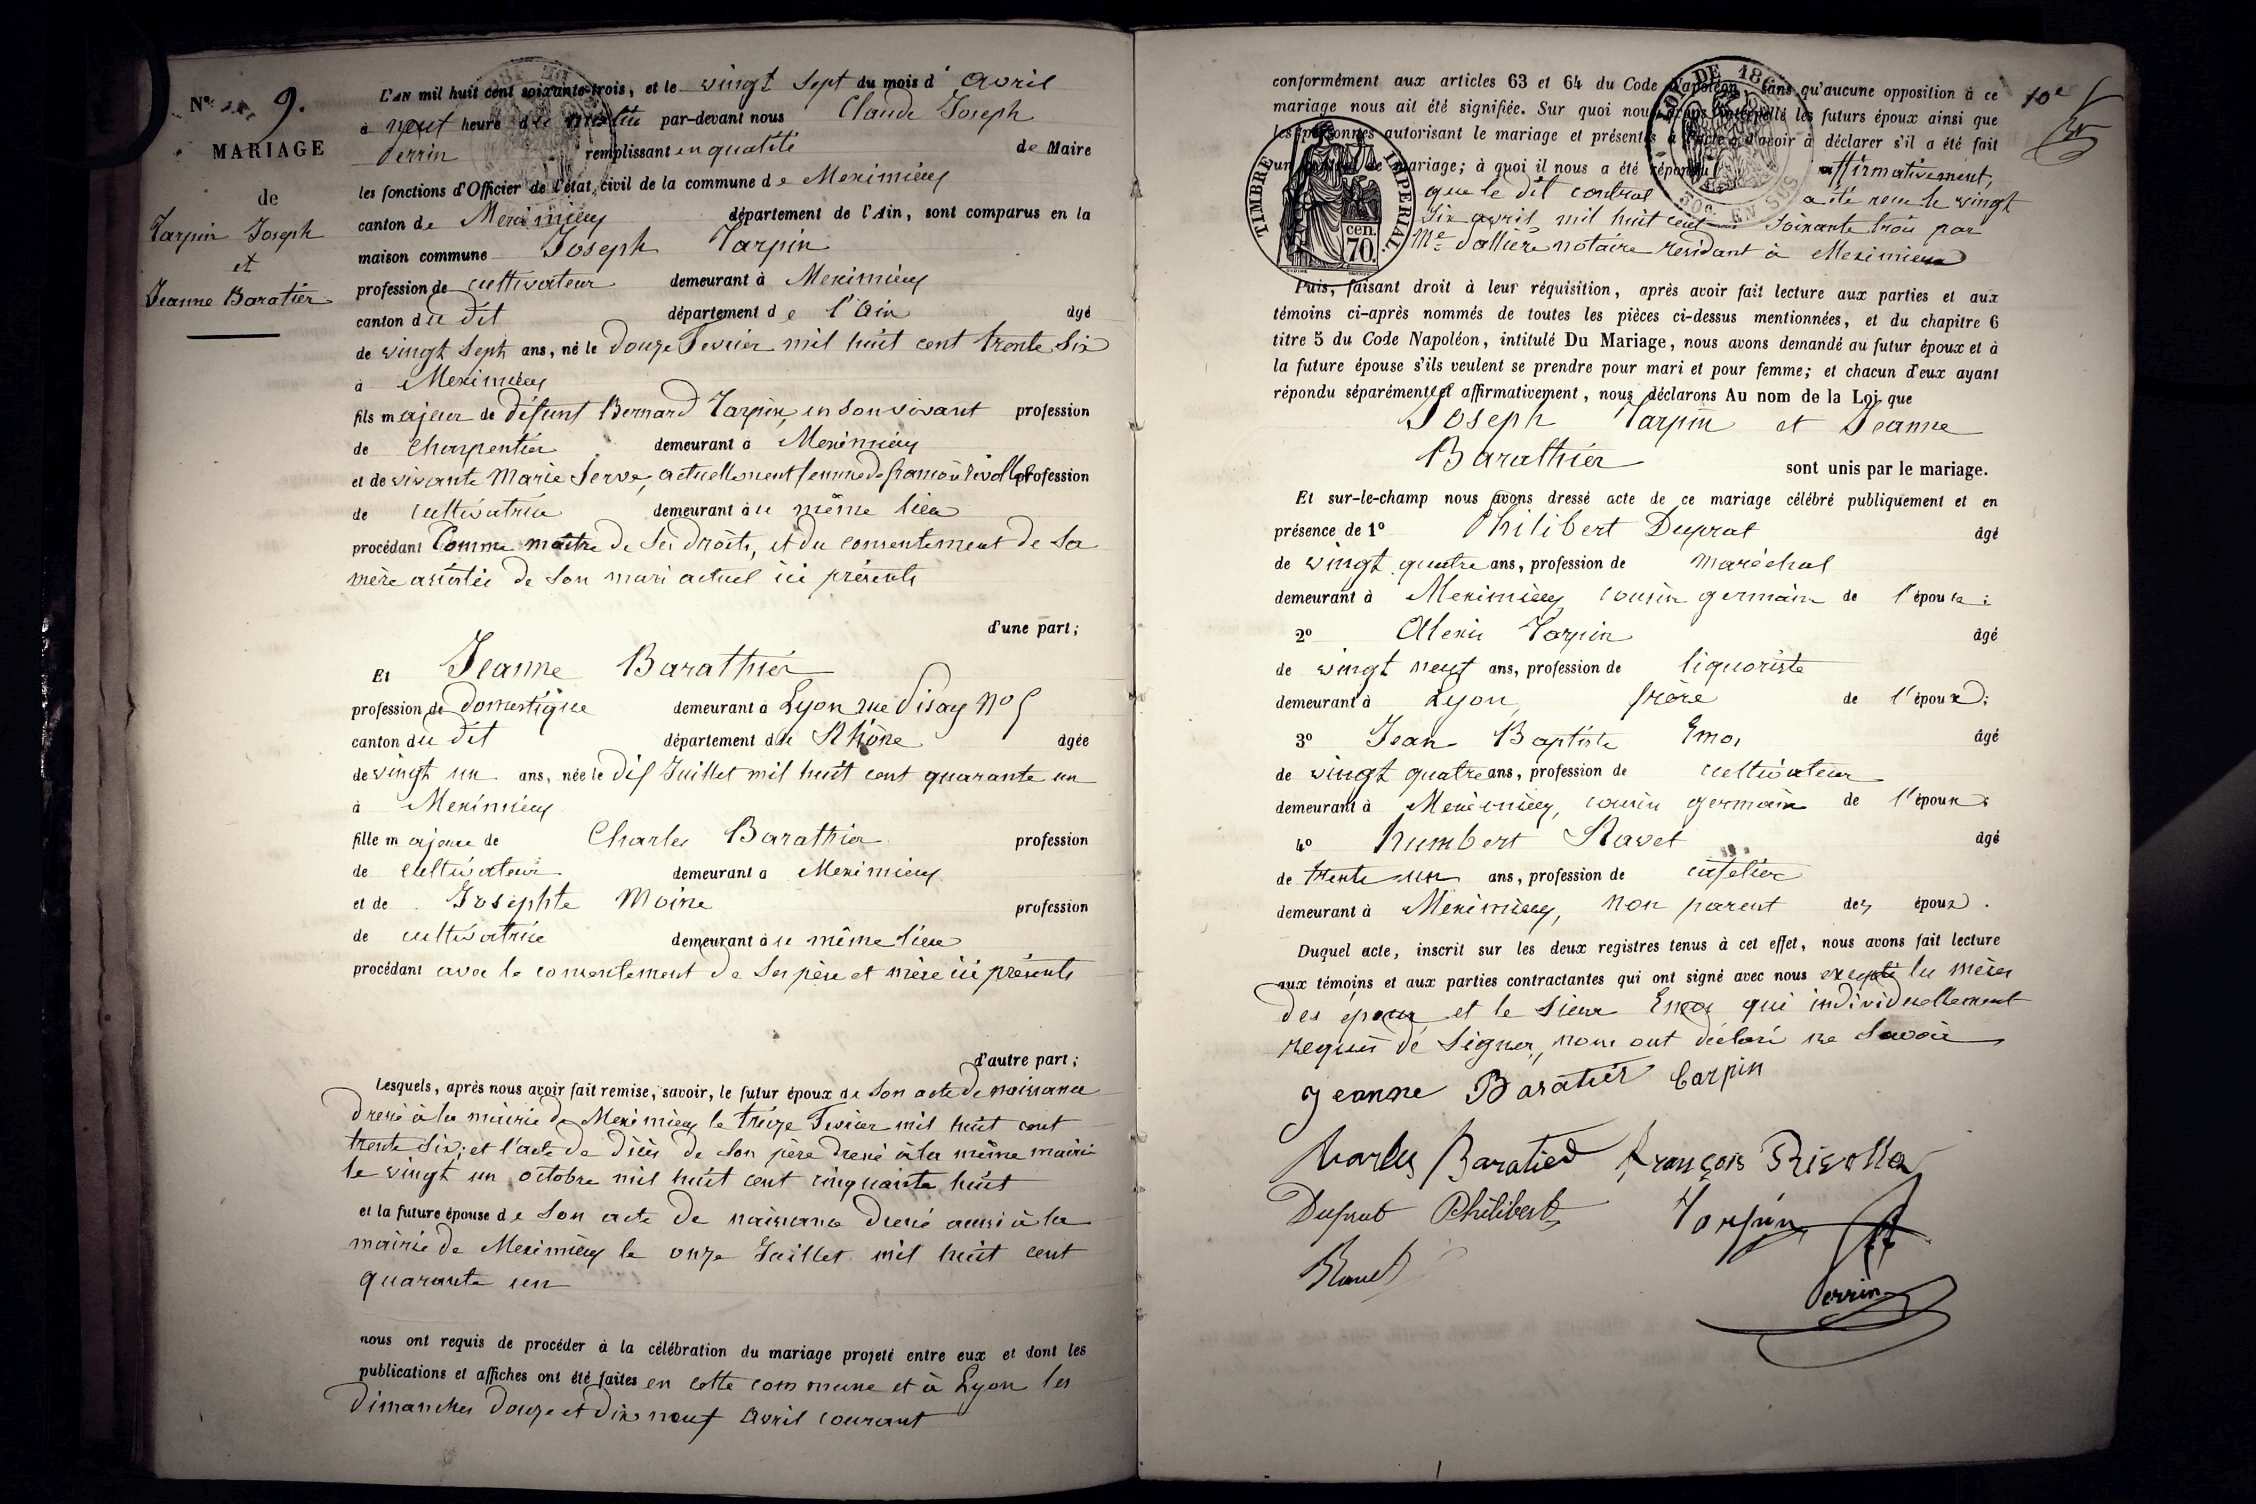 N° 9.
MARIAGE
de
Tarpin Joseph
et
Jeanne Baratier
L'AN mil huit cent soixante-trois, et le vingt sept du mois d'avril
à neuf heure du matin par-devant nous Claude Joseph
Perrin remplissant en qualité de Maire
les fonctions d'Officier de l'état civil de la commune de Meximieux
canton de Meximieux département de l'Ain, sont comparus en la
maison commune Joseph Tarpin
profession de cultivateur demeurant à Meximieux
canton du dit département de l'Ain âgé
de vingt sept ans, né le douze Fevrier mil huit cent trente six
à Meximieux
fils majeur de défunt Bernard Tarpin, en son vivant profession
de charpentier demeurant à Meximieux
et de vivante Marie Serve, actuellement femme de françois rivollet profession
de cultivatrice demeurant au même lieu
procédant Comme maître de ses droits, et du consentement de sa
mère assistée de son mari actuel ici présents
d'une part;
Et Jeanne Barathier
profession de domestique demeurant à Lyon rue Pisay no 5
canton du dit département du Rhône âgée
de vingt un ans, née le dix Juillet mil huit cent quarante un
à Meximieux
fille majeure de Charles Barathier profession
de cultivateur demeurant à Meximieux
et de Josephte Moine profession
de cultivatrice demeurant au même lieu
procédant avec le consentement de ses père et mère ici présents
d'autre part;
Lesquels, après nous avoir fait remise, savoir, le futur époux de son acte de naissance
dressé à la mairie de Meximieux le treize Fevrier mil huit cent
trente six; et l'acte de décès de son père dressé à la même mairie
le vingt un octobre mil huit cent cinquante huit
et la future épouse de son acte de naissance dressé aussi à la
mairie de Meximieux le onze Juillet mil huit cent
quarante un
nous ont requis de procéder à la célébration du mariage projeté entre eux et dont les
publications et affiches ont été faites en cette commune et à Lyon les
dimanches douze et dix neuf avril courant
10e
conformément aux articles 63 et 64 du Code Napoléon, sans qu'aucune opposition à ce
mariage nous ait été signifiée. Sur quoi nous avons interpellé les futurs époux ainsi que
les personnes autorisant le mariage et présentes à l'acte, d'avoir à déclarer s'il a été fait
un contrat de mariage; à quoi il nous a été répondu affirmativement,
que le dit contrat a été recu le vingt
six avril mil huit cent soixante trois par
Me dallière notaire residant à Meximieux
TIMBRE IMPERIAL.
70 cen.
LOI DE 186
EN SUS
Puis, faisant droit à leur réquisition, après avoir fait lecture aux parties et aux
témoins ci-après nommés de toutes les pièces ci-dessus mentionnées, et du chapitre 6
titre 5 du Code Napoléon, intitulé Du Mariage, nous avons demandé au futur époux et à
la future épouse s'ils veulent se prendre pour mari et pour femme; et chacun d'eux ayant
répondu séparément et affirmativement, nous déclarons Au nom de la Loi que
Joseph Tarpin et Jeanne
Barathier sont unis par le mariage.
Et sur-le-champ nous avons dressé acte de ce mariage célébré publiquement et en
présence de 1° Philibert Duprat âgé
de vingt quatre ans, profession de maréchal
demeurant à Meximieux cousin germain de l'épouse;
2° Alexis Tarpin âgé
de vingt neuf ans, profession de liquoriste
demeurant à Lyon, frère de l'époux;
3° Jean Baptiste Emos âgé
de vingt quatre ans, profession de cultivateur
demeurant à Meximieux, cousin germain de l'époux;
4° humbert Ravet âgé
de trente un ans, profession de cafetier
demeurant à Meximieux, non parent des époux.
Duquel acte, inscrit sur les deux registres tenus à cet effet, nous avons fait lecture
aux témoins et aux parties contractantes qui ont signé avec nous excepté les mères
des époux et le sieur Emos qui individuellement
requis de signer, nous ont déclaré ne savoir
Jeanne Baratier tarpin
Charles Baratier François Rivollet
Duprat Philibert Tarpin
Ravet
Perrin